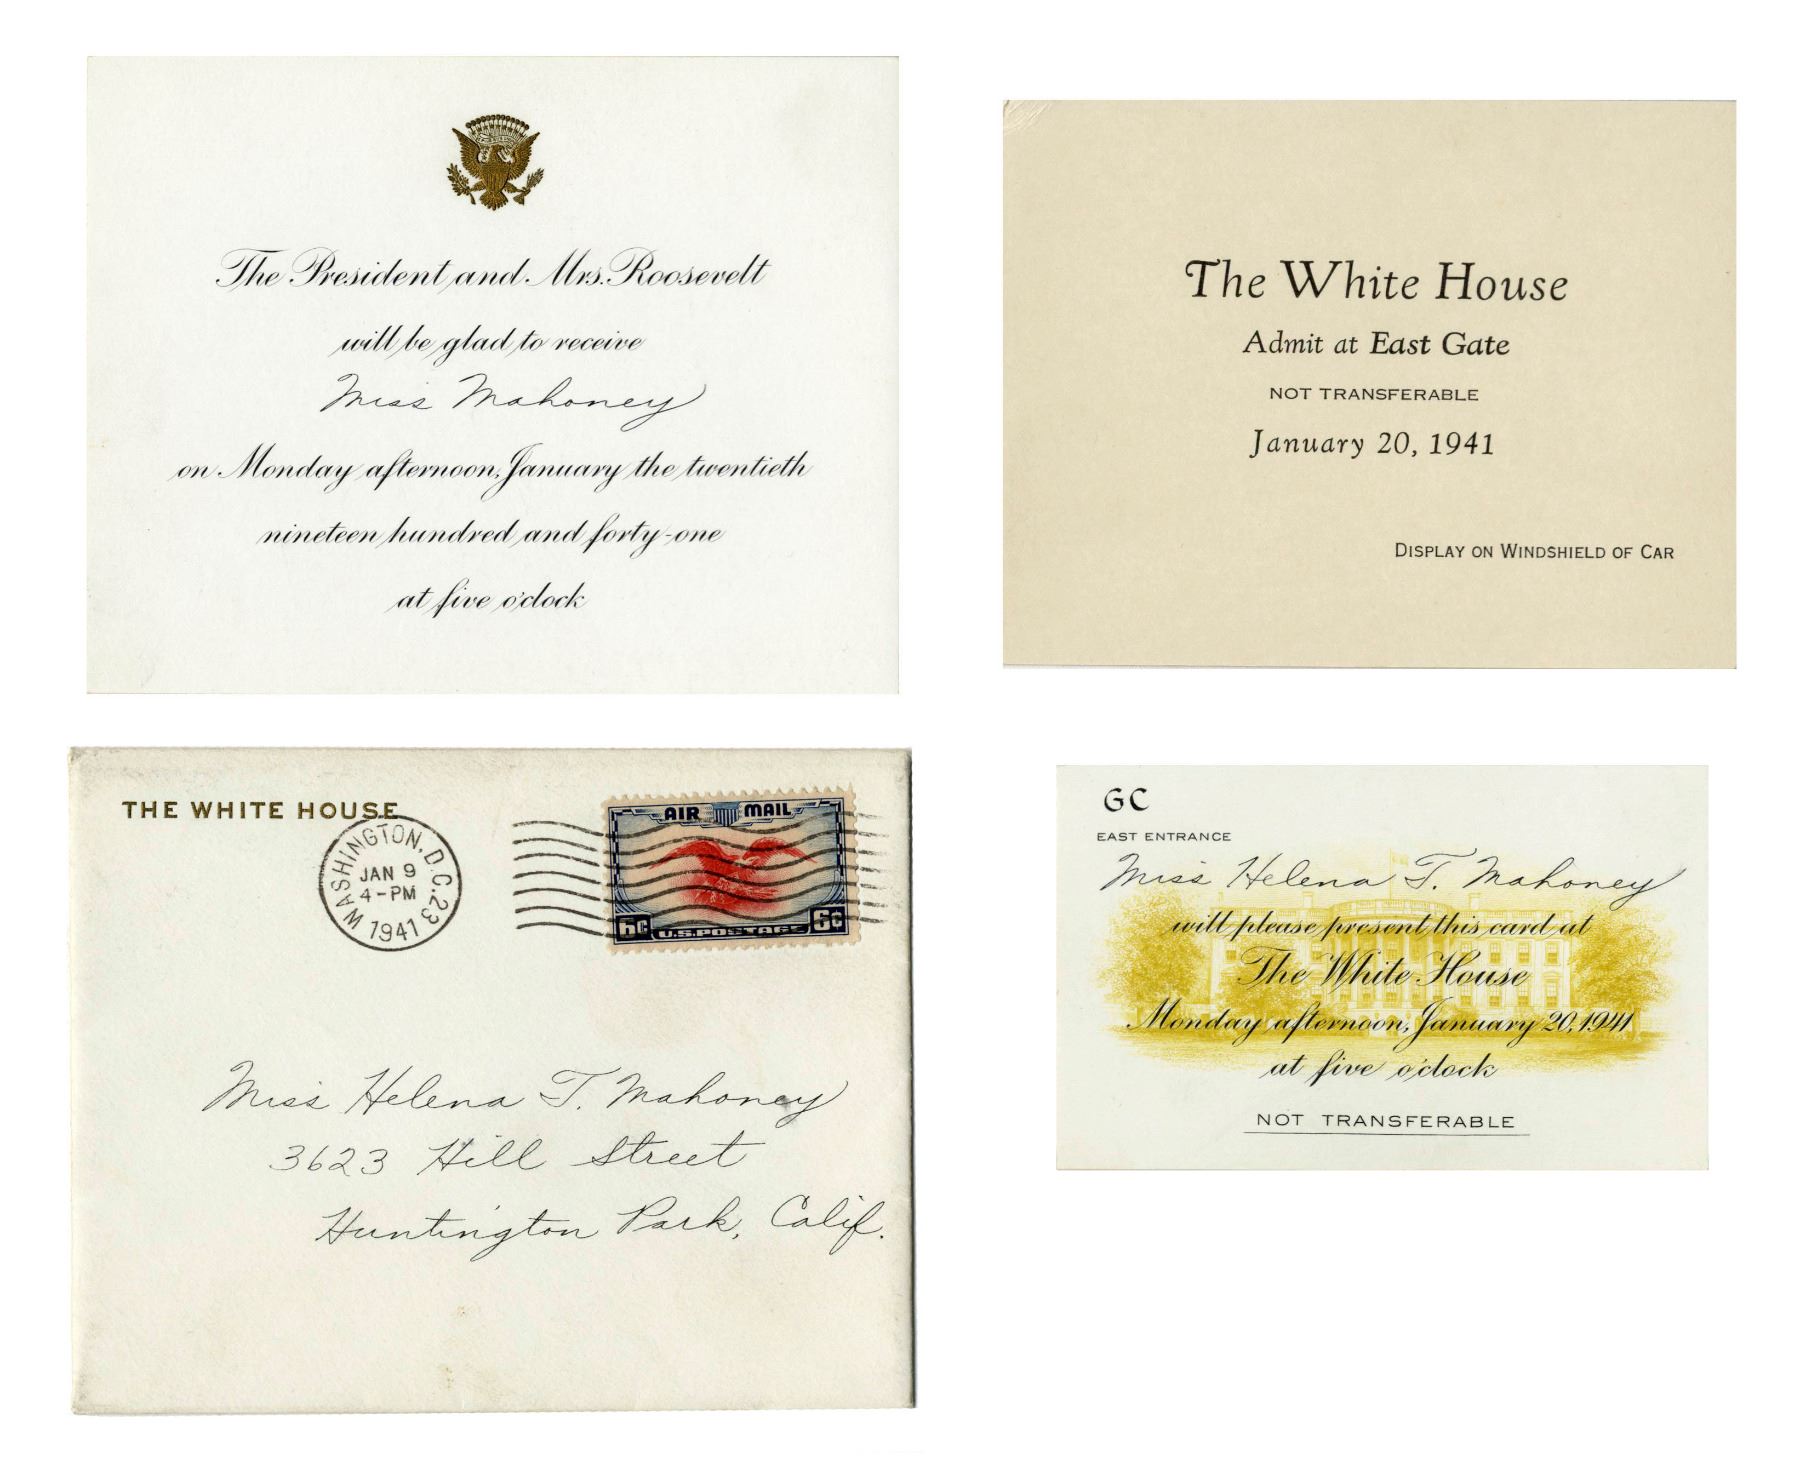 The President and Mrs. Roosevelt
will be glad to receive
Miss Mahoney
on Monday afternoon, January the twentieth
nineteen hundred and forty-one
at five o'clock
The White House
Admit at East Gate
NOT TRANSFERABLE
January 20, 1941
DISPLAY ON WINDSHIELD OF CAR
THE WHITE HOUSE
WASHINGTON, D.C. 23
JAN 9
4-PM
1941
AIR MAIL
6c U.S. POSTAGE 6c
Miss Helena T. Mahoney
3623 Hill Street
Huntington Park, Calif.
GC
EAST ENTRANCE
Miss Helena T. Mahoney
will please present this card at
The White House
Monday afternoon, January 20, 1941
at five o'clock
NOT TRANSFERABLE